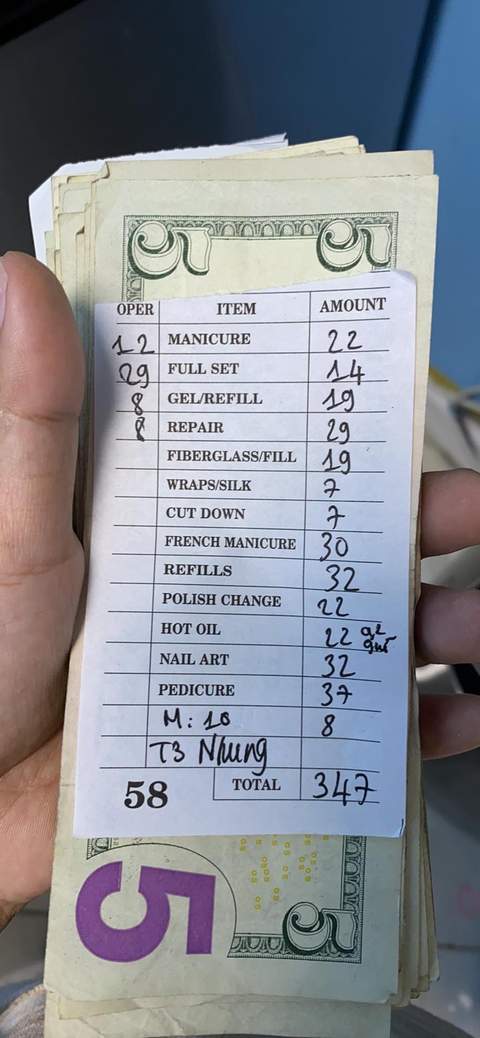 5 5
OPER ITEM AMOUNT
12 MANICURE 22
29 FULL SET 14
8 GEL/REFILL 19
8 REPAIR 29
FIBERGLASS/FILL 19
WRAPS/SILK 7
CUT DOWN 7
FRENCH MANICURE 30
REFILLS 32
POLISH CHANGE 22
HOT OIL 22
NAIL ART 32
PEDICURE 37
M: 10 8
T3 Nhung
58 TOTAL 347
5 5